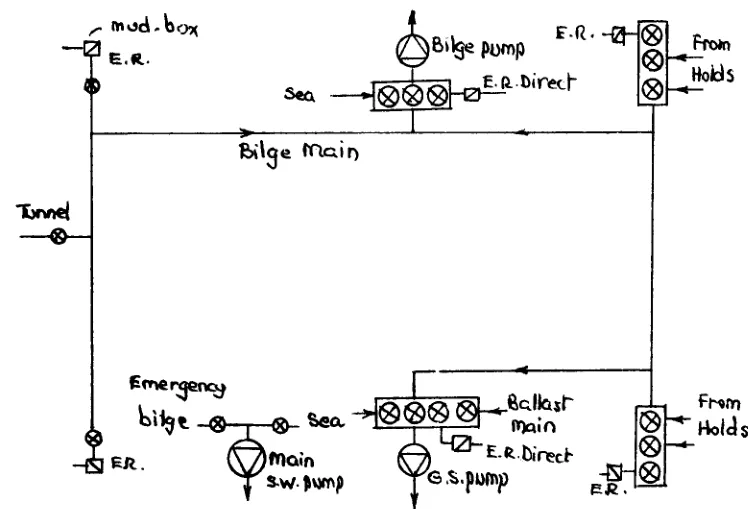 mud-box
E.R.
Bilge pump
E.R.
From
Holds
Sea
E.R.Direct
Bilge main
Tunnel
Emergency
bilge
Sea
Ballast
main
From
Holds
E.R.
main
S.W. pump
G.S.pump
E.R.Direct
E.R.